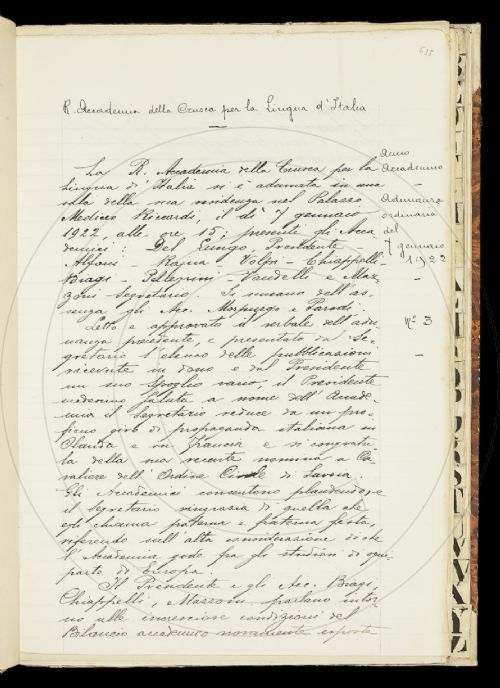 615
R. Accademia della Crusca per la Lingua d'Italia
La R. Accademia della Crusca per la
Lingua d'Italia si è adunata in una
sala della sua residenza nel Palazzo
Mediceo Riccardi, il dì 7 gennaio
1922, alle ore 15; presenti gli Acca
demici: Del Lungo, Presidente –
Alfani – Rajna – Volpi – Chiappelli –
Biagi – Pellegrini – Vandelli e Maz-
zoni Segretario. Si scusano dell'as-
senza gli Acc. Morpurgo e Parodi.
Letto e approvato il verbale dell'adu-
nanza precedente, e presentato dal Se-
gretario l'elenco delle pubblicazioni
ricevute in dono e dal Presidente
un suo Spoglio vario, il Presidente
medesimo saluta a nome dell'Accade-
mia il Segretario reduce da un pro-
ficuo giro di propaganda italiana in
Olanda e in Francia e si congratu
la della sua recente nomina a Ca-
valiere dell'Ordine Civile di Savoia.
Gli Accademici consentono plaudendo, e
il Segretario ringrazia di quella che
egli chiama paterna e fraterna festa,
riferendo sull'alta considerazione di che
l'Accademia gode fra gli studiosi di ogni
parte di Europa.
Il Presidente e gli Acc. Biagi,
Chiappelli, Mazzoni, parlano intor-
no alle incresciose condizioni del
Bilancio accademico novamente esposte
Anno
Accademico
–
Adunanza
ordinaria
del
7 gennaio
1922
–
N° 3
–